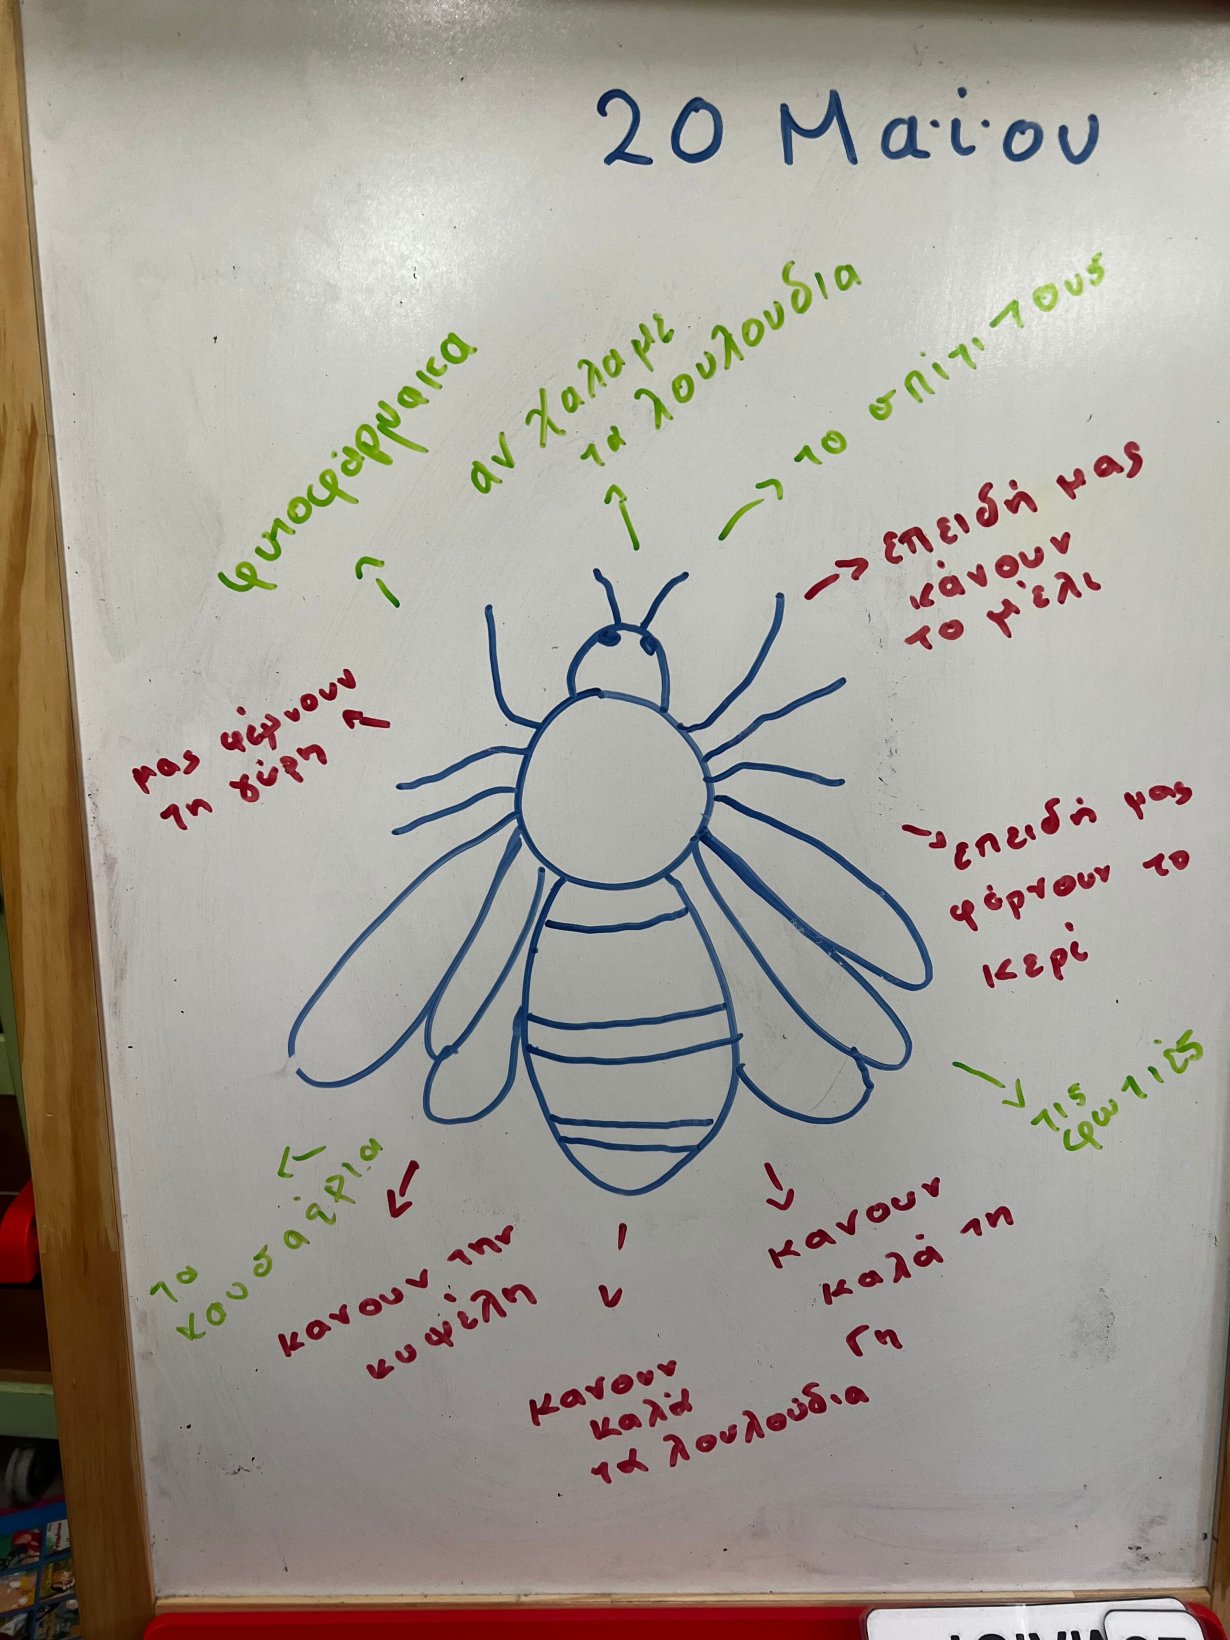 20 Μαΐου
φυτοφάρμακα
αν χαλαμε
τα λουλουδια
το σπίτι τους
επειδή μας
κάνουν
το μέλι
μας φέρνουν
τη γύρη
επειδή μας
φέρνουν το
κερί
τις
φωτιές
τα
κανουν την
κυψέλη
κανουν
καλά
τα λουλούδια
κανουν
καλά τη
Γη